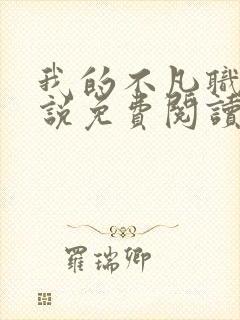 我的不凡職
說免費閱讀
羅瑞卿